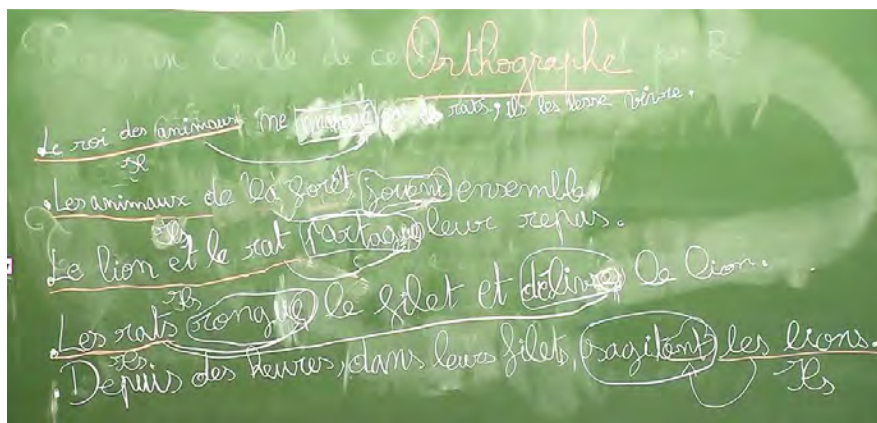 un cercle de ce Orthographe par R
Le roi des animaux ne rats, ils les lesse vivre.
Il
. Les animaux de la forêt, jouent ensemble.
Ils
Le lion et le rat partage leur repas.
Ils
. Les rats ronge le filet et délivre le lion.
Ils
. Depuis des heures, dans leurs filets, sagitent les lions.
Ils